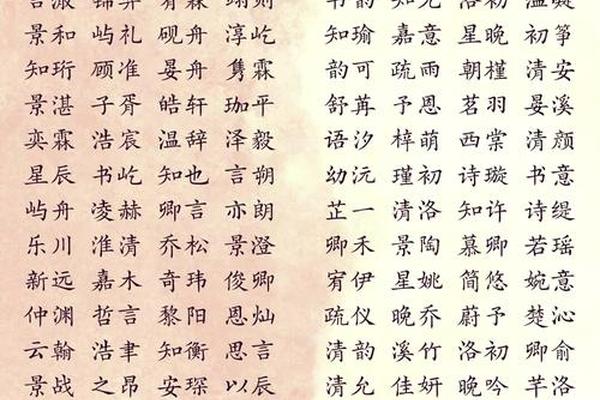 景和 屿礼 砚舟 淳屹 知瑜 嘉意 星晚 初筝
知珩 顾准 晏舟 隽霖 韵可 疏雨 朝槿 清安
景湛 子胥 皓轩 珈平 舒苒 予恩 茗羽 晏溪
奕霖 浩宸 温辞 泽毅 语汐 梓萌 西棠 清颜
星辰 书屹 知也 言朔 幼沅 瑾初 诗璇 书意
屿舟 凌赫 卿言 亦朗 芷一 清洛 知许 诗缇
乐川 淮清 乔松 景澄 卿禾 景陶 慕卿 若瑶
新远 嘉木 奇玮 俊卿 宥伊 星姚 简悠 婉意
仲渊 哲言 黎阳 恩灿 疏仪 晚乔 蔚予 楚沁
云翰 浩聿 知衡 思言 清韵 溪竹 洛初 卿俞
景战 之昂 安琛 以辰 清允 佳妍 晚吟 芊洛